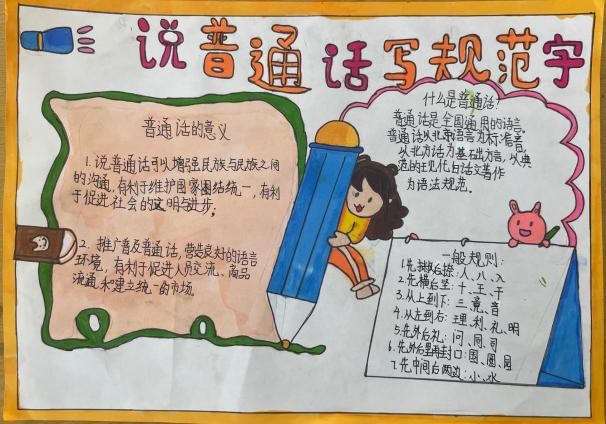 说普通话写规范字
普通话的意义
1.说普通话可以增强民族与民族之间
的沟通,有利于维护国家团结统一,有利
于促进社会的文明与进步;
2.推广普及普通话,营造良好的语言
环境,有利于促进人员交流、商品
流通,和建立统一的市场。
什么是普通话?
普通话是全国通用的语言
普通话以北京语言为标准音
以北方话为基础方言,以典
范的现代白话文著作
为语法规范。
一般规则:
1.先撇后捺:人、八、入
2.先横后竖:十、王、干
3.从上到下:三、竟、音
4.从左到右:理、利、礼、明
5.先外后礼:问、同、司
6.先外后里再封口:国、圆、园
7.先中间后两边:小、水